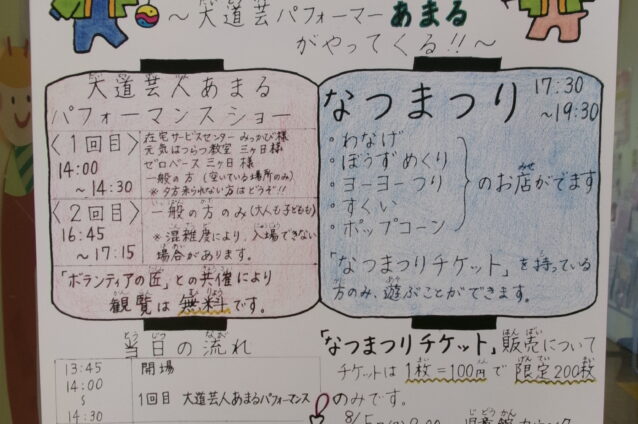 ～大道芸パフォーマーあまる
がやってくる!!～
大道芸人あまる
パフォーマンスショー
〈1回目〉
14:00
～14:30
在宅サービスセンター みっかび様
元気はつらつ教室 三ヶ日様
ゼロベース三ヶ日様
一般の方(空いている場所のみ)
※夕方来られない方はどうぞ!!
〈2回目〉
16:45
～17:15
一般の方のみ(大人も子どもも)
※混雑度により、入場できない
場合があります。
「ボランティアの匠」との共催により
観覧は無料です。
なつまつり 17:30
～19:30
・わなげ
・ぼうずめくり
・ヨーヨーつり
・すくい
・ポップコーン
のお店がでます
「なつまつりチケット」を持っている
方のみ、遊ぶことができます。
当日の流れ
13:45 開場
14:00
～
14:30
1回目 大道芸人あまるパフォーマンス
「なつまつりチケット」販売について
チケットは1枚=100円で限定200枚
のみです。